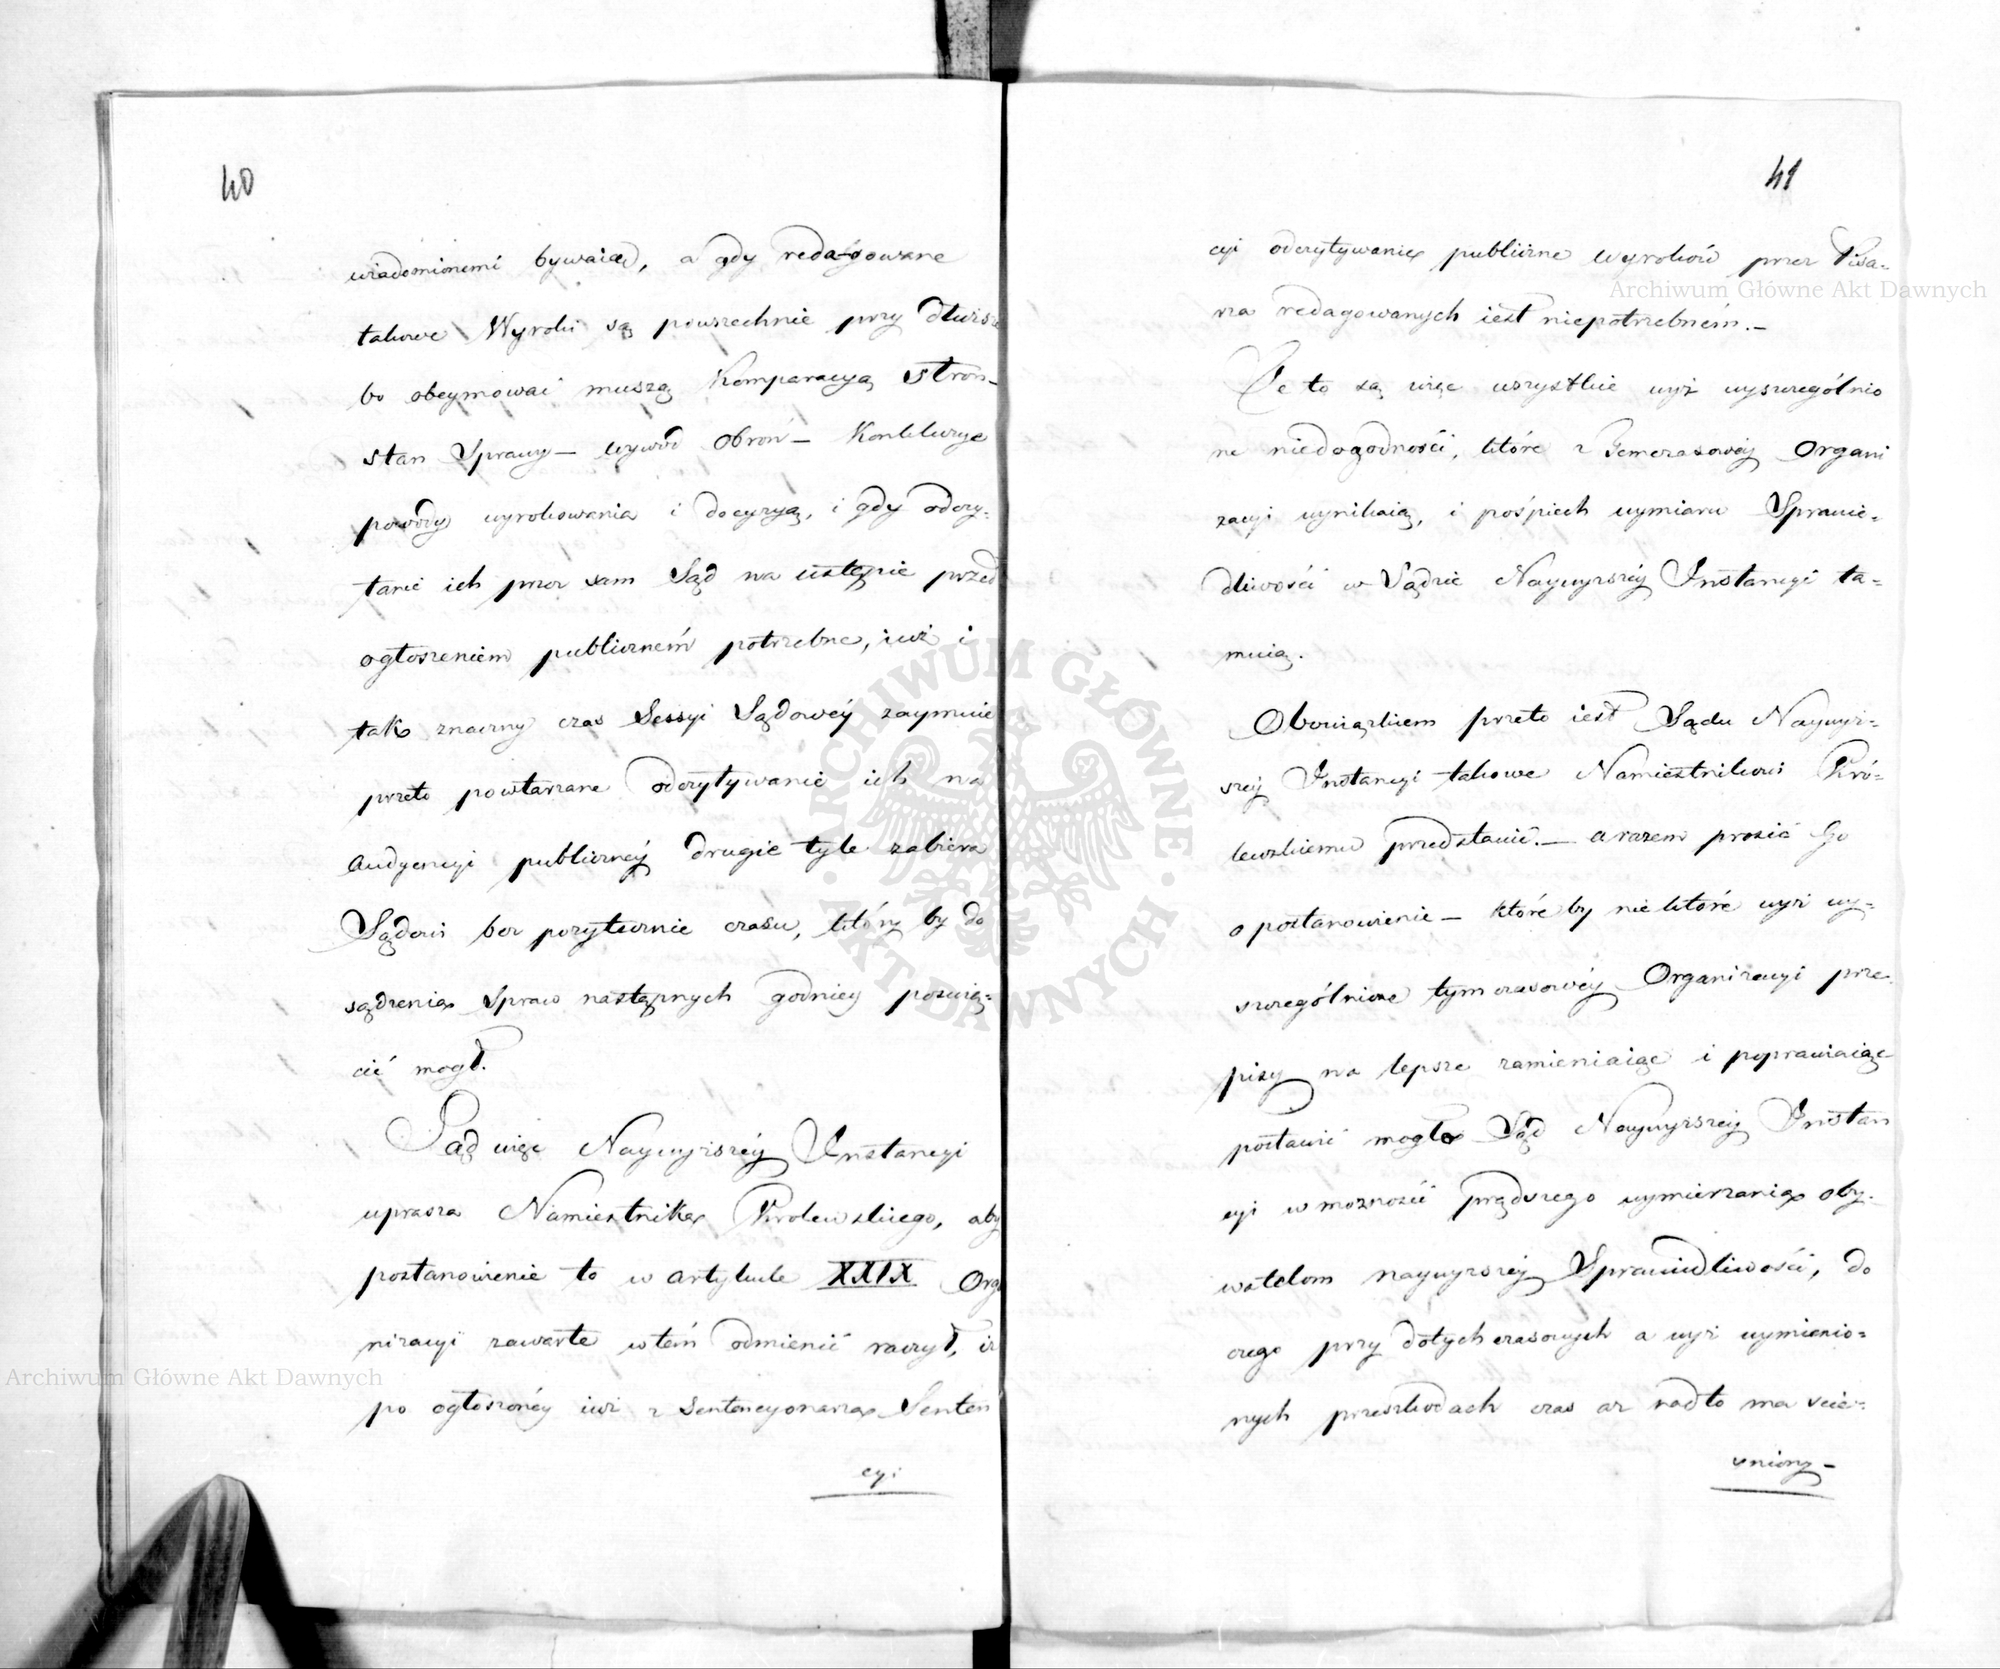 40
wiadomionemi bywaią, a gdy redagowane
takowe Wyroki są powszechnie przy dłuższe
bo obeymować muszą Komparacyą Stron–
stan Sprawy – wywód Obron – Konkluzye
powody wyrokowania i decyzyą, i gdy odczy-
tanie ich przez sam Sąd na ustępie przed
ogłoszeniem publicznem potrzebne, iuż i
tak znaczny czas Sessyi Sądowéy zaymuie
przeto powtarzane odczytywanie ich na
Audyencyi publicznéy drugie tyle zabiera
Sądowi bez pożytecznie czasu, któryby do
sądzenia Spraw następnych godniey poświę-
cić mogł.
Sąd więc Naywyższéy Instancyi
uprasza Namiestnika Krolewskiego, aby
postanowienie to w artykule XXIX Orga
nizacyi zawarte w tem odmienić raczył, iż
po ogłoszonéy iuż z Sentencyonarza Senten
cyi
41
cyi odczytywanie publiczne wyroków przez Pisa-
rza redagowanych iest niepotrzebném.–
Te to są więc wszystkie wyż wyszczególnio
ne niedogodności, które z Tymczasowéy Organi
zacyi wynikaią, i pośpiech wymiaru Sprawie-
dliwości w Sądzie Naywyższéy Instancyi ta-
muią.
Obowiązkiem przeto iest Sądu Naywyż-
széy Instancyi takowe Namiestnikowi Kró-
lewskiemu przedstawić.– a razem prosić Go
o postanowienie – któreby niektóre wyż wy-
szczególnione tymczasowéy Organizacyi prze-
pisy na lepsze zamieniaiąc i poprawiaiąc
postawić mogło Sąd Naywyższéy Instan
cyi w możność prędszego wymierzania oby-
watelom naywyższéy Sprawiedliwości, do
czego przy dotychczasowych a wyż wymienio-
nych przeszkodach czas aż nadto ma ście-
śniony –
Archiwum Główne Akt Dawnych
Archiwum Główne Akt Dawnych
ARCHIWUM GŁÓWNE
AKT DAWNYCH